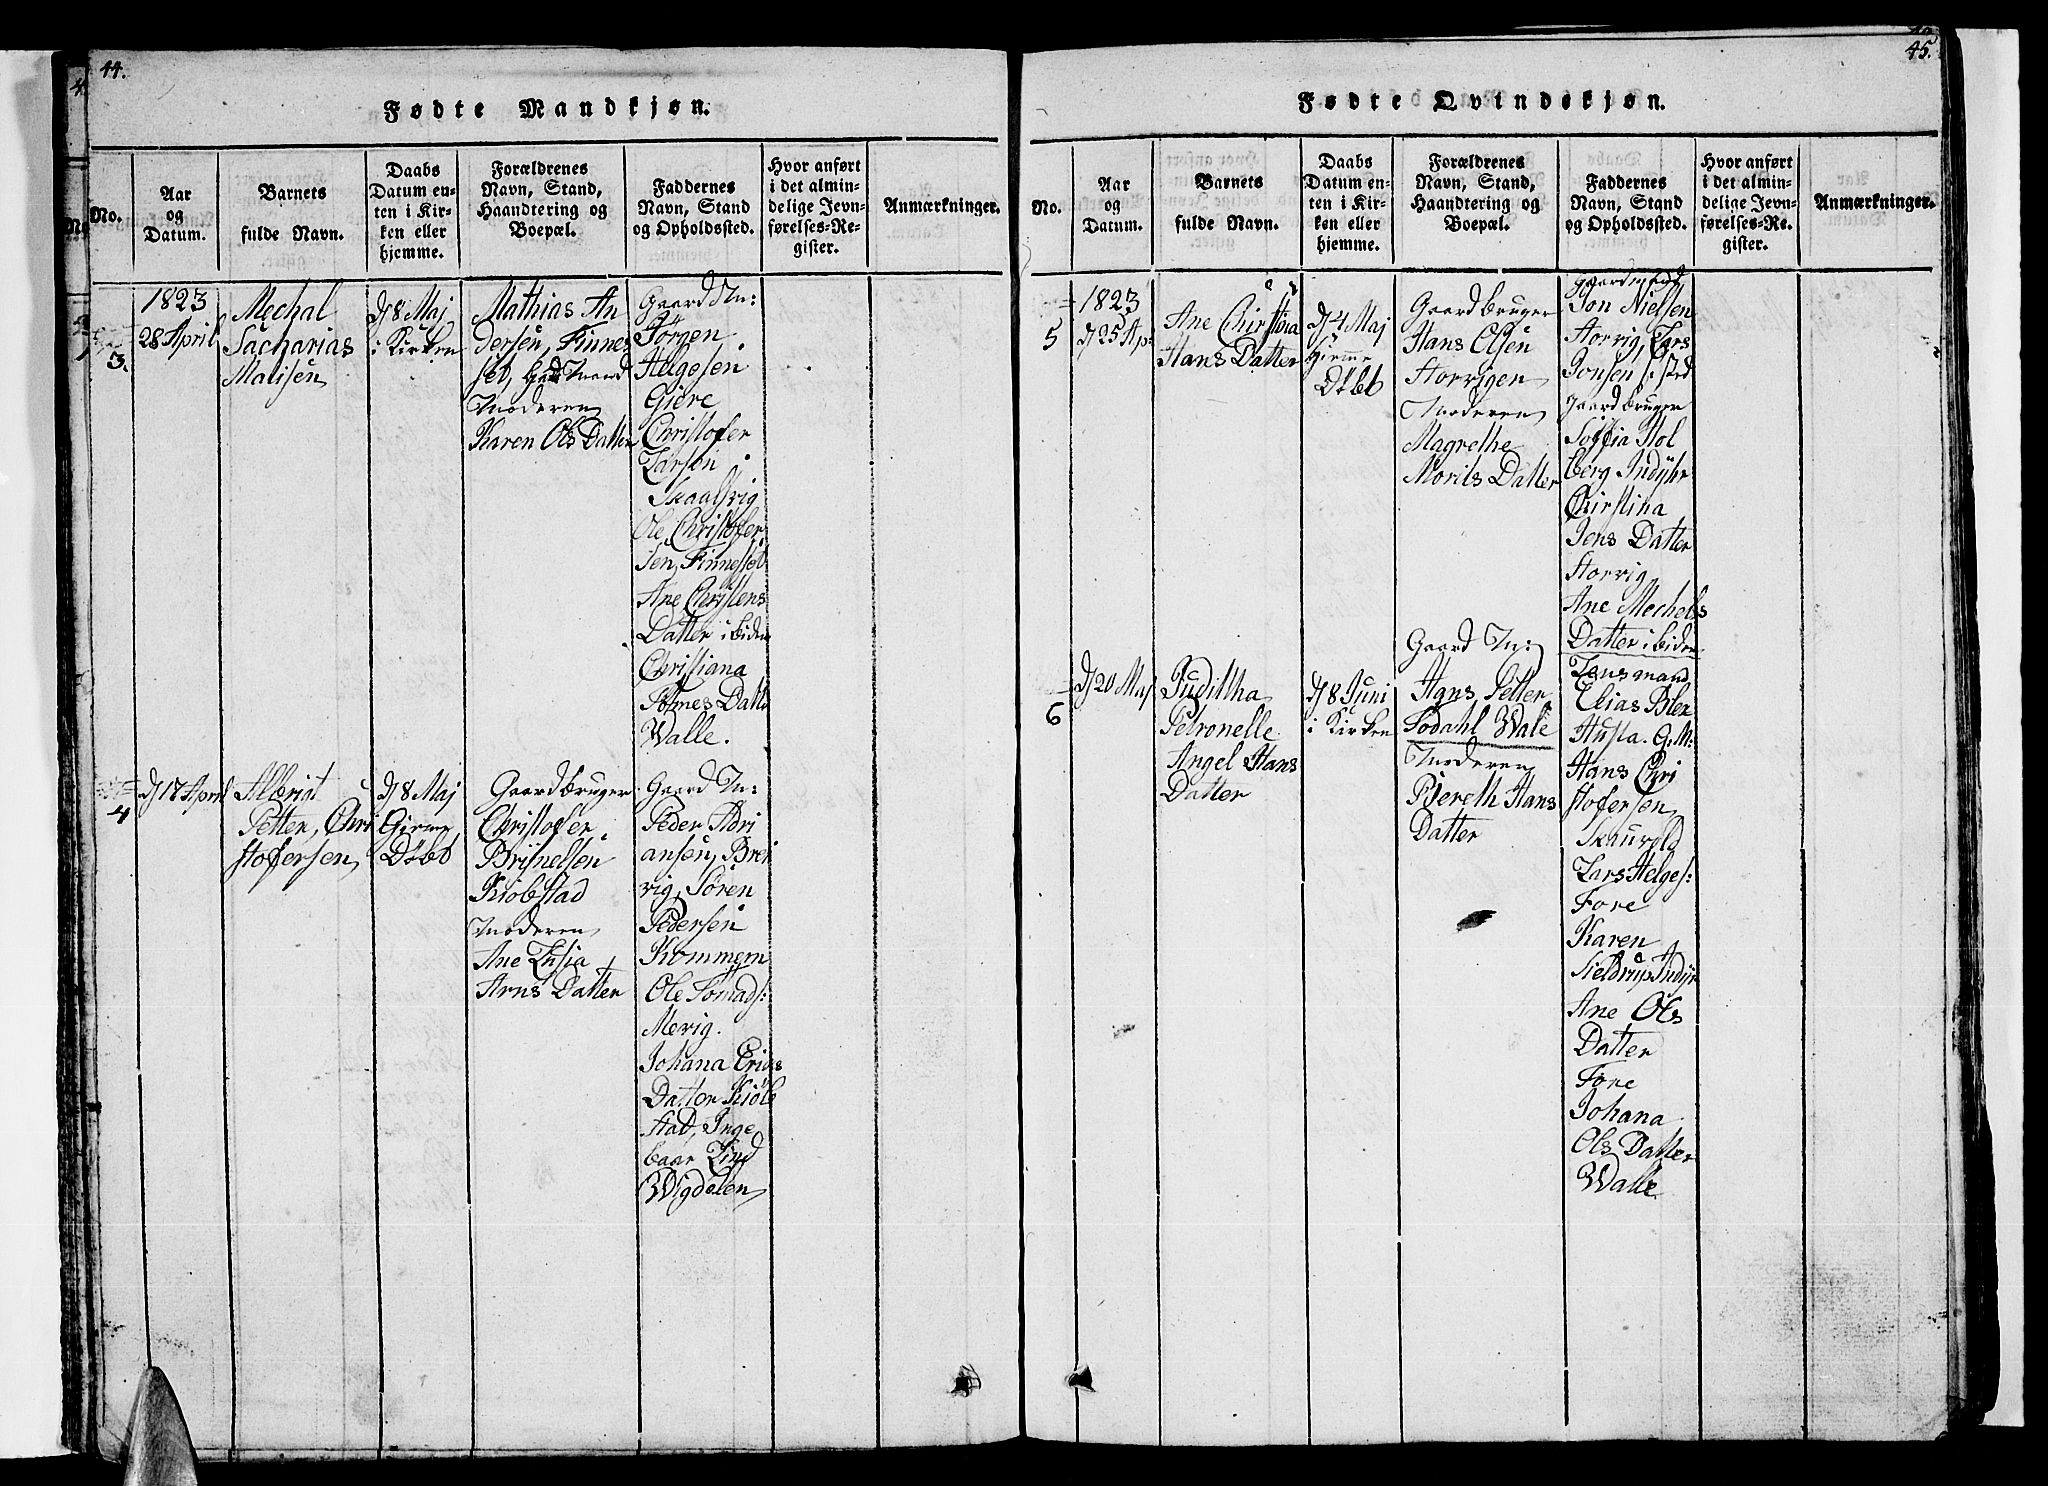 44.
Fødte Mandkjøn.
No.
Aar
og
Datum.
Barnets
fulde Navn.
Daabs
Datum en-
ten i Kir-
ken eller
hjemme.
Forældrenes
Navn, Stand,
Haandtering og
Boepæl.
Faddernes
Navn, Stand
og Opholdssted.
Hvor anført
i det almin-
delige Jevn-
førelses-Re-
gister.
Anmærkninger.
3.
1823
28 April
Mechal
Sacharias
Matisen
d 8 Maj
i Kirken
Mathias An
dersen, Finnes
set,
Moderen
Karen Ols Datter
Gaard M:
Jörgen
Helgesen
Giere
Christofer
Larsen
Skaalsvig
Ole Christofer
sen, Finneset
Ane Christens
Datter ibiden
Christiana
Tomes Datter
Walle.
4
d 17 April
Albrigt
Petter, Chri
stofersen
d 8 Maj
Giem
Döbt
Gaardbruger
Christofer
Brijnelsen
Kiobstad
Moderen
Ane Lusia
Arns Datter
Gaard M:
Peder Adri
ansen, Brei
vig, Sören
Pedersen
Kommem
Ole Tomads:
Mevig.
Johana Erics
Datter Kiöb
stad, Inge
baar Lind
Wigdelen
45.
Fødte Qvindekjøn.
No.
Aar
og
Datum.
Barnets
fulde Navn.
Daabs
Datum en-
ten i Kir-
ken eller
hjemme.
Forældrenes
Navn, Stand,
Haandtering og
Boepæl.
Faddernes
Navn, Stand
og Opholdssted.
Hvor anført
i det almin-
delige Jevn-
førelses-Re-
gister.
Anmærkninger.
5
1823
d 25 Ap:
Ane Chirstina
Hans Datter
d 4 Maj
Hiemme
Döbt
Gaardbruger
Hans Olsen
Storvigen
Moderen
Magrethe
Morits Datter
Gaardmand
Jon Nielsen
Storvig, Lars
Jonsen i sted
Gaardbruger
Soffia Hol
berg Indyhr
Chirstina
Jens Datter
Storvig
Ane Mechels
Datter ibiden
6
d 20 Maj
Judittha
Petronelle
Angel Hans
Datter
d 8 Juni
i Kirken
Gaard M:
Hans Petter
Fodahl Wale
Moderen
Bereth Hans
Datter
Lensmand
Elias Blex
Husta. G.M:
Hans Chri
stofersen
Skauvold
Lars Helges:
Fore
Karen
Sieldrup Indyr
Ane Ols
Datter
Fore
Johana
Ols Datter
Walle